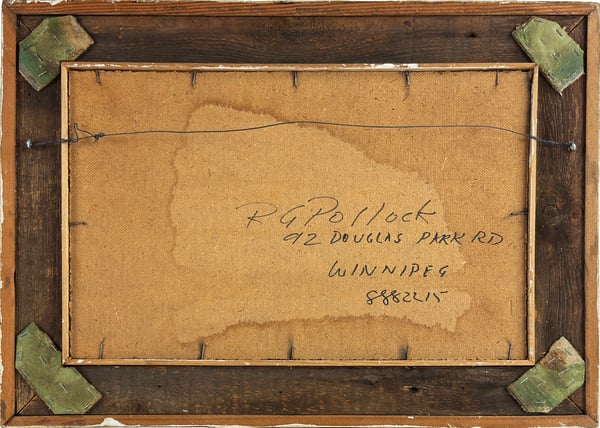 R G Pollock
92 DOUGLAS PARK RD
WINNIPEG
8882215